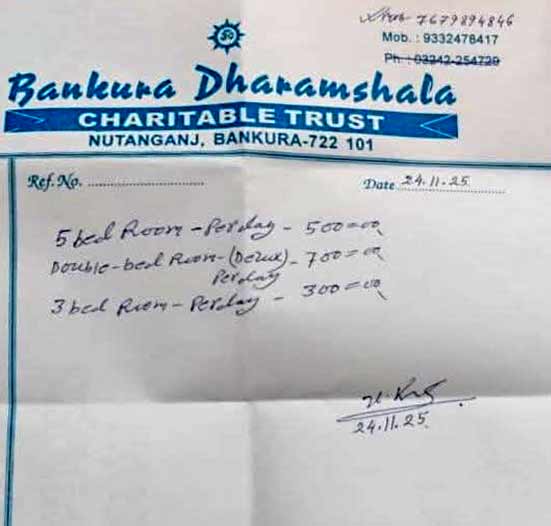 7679894846
Mob. : 9332478417
Ph. : 03242-254729
Bankura Dharamshala
CHARITABLE TRUST
NUTANGANJ, BANKURA-722 101
Ref. No. ..............................
Date 24.11.25
5 bed Room - Per day - 500=00
Double-bed Room-(Delux) - 700=00
Per day
3 bed Room - Per day - 300=00
24.11.25